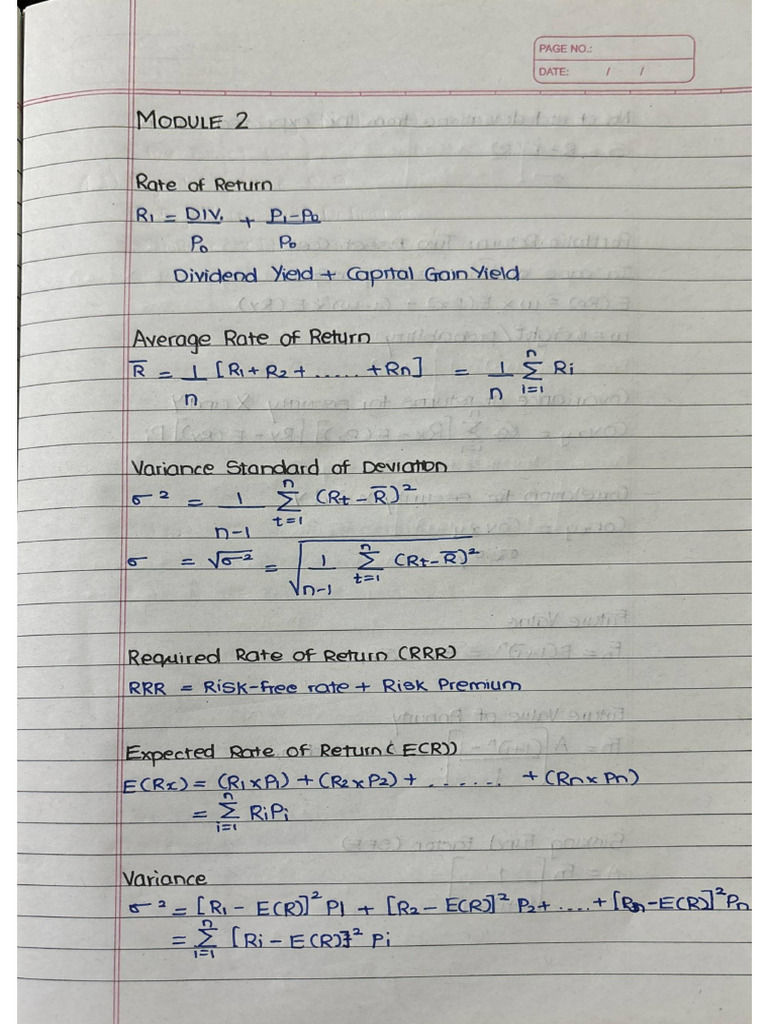 PAGE NO.:
DATE: / /
MODULE 2
Rate of Return
R1 = DIV. / P0 + P1-P0 / P0
Dividend Yield + Capital Gain Yield
Average Rate of Return
R̅ = 1/n [R1 + R2 + ...... + Rn] = 1/n n∑i=1 Ri
Variance Standard of Deviation
σ² = 1/n-1 n∑t=1 (Rt - R̅)²
σ = √σ² = √1/n-1 n∑t=1 (Rt - R̅)²
Required Rate of Return (RRR)
RRR = Risk-free rate + Risk Premium
Expected Rate of Return (E(R))
E(Rx) = (R1 x P1) + (R2 x P2) + ....... + (Rn x Pn)
= n∑i=1 RiPi
Variance
σ² = [R1 - E(R)]² P1 + [R2 - E(R)]² P2 + .... + [Rn - E(R)]² Pn
= n∑i=1 [Ri - E(R)]² Pi